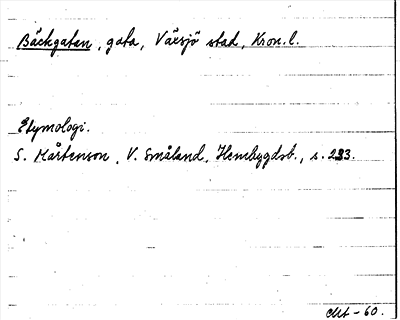 Bäckgatan, gata, Växsjö stad, Kron. l.
Etymologi.
S. Mårtenson, V. Småland, Hembygdsb., s. 233.
-60.